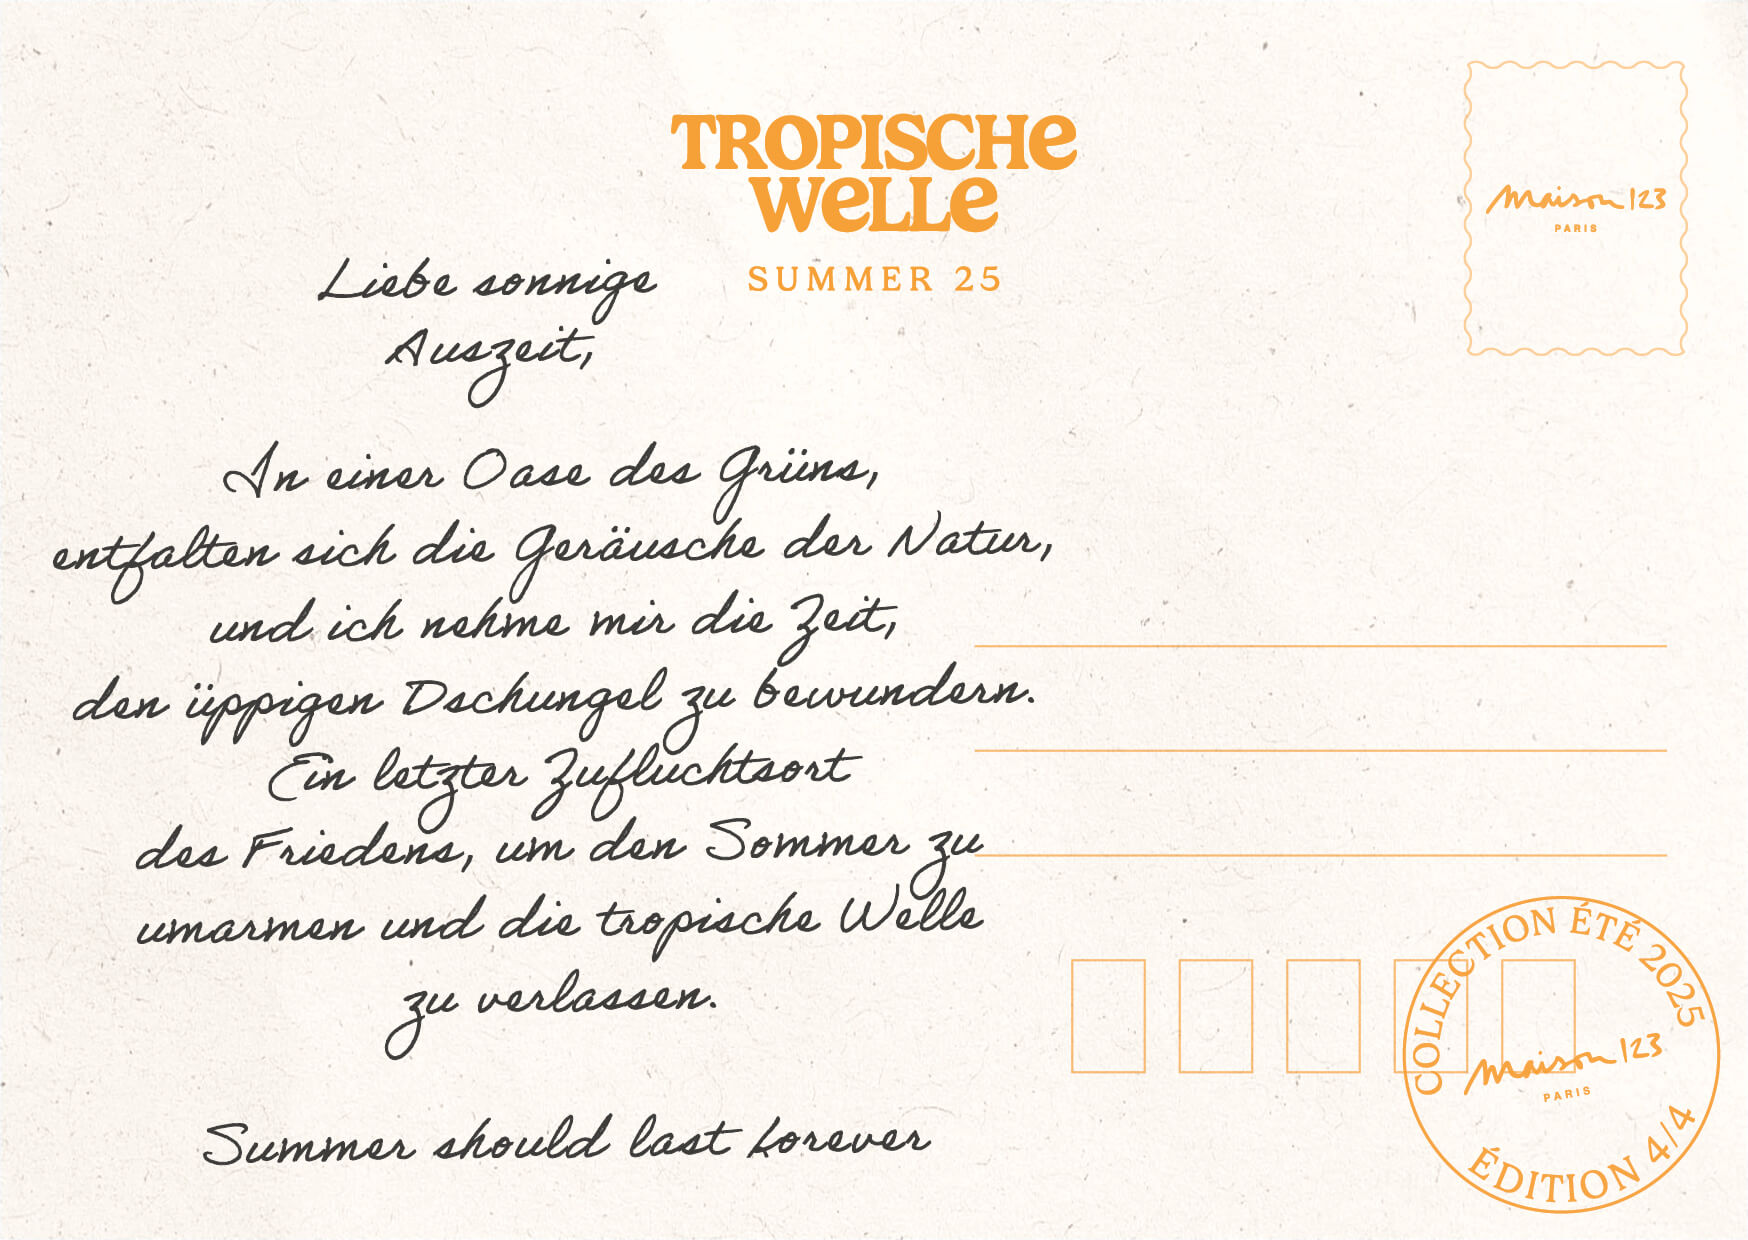 TROPISCHE
WELLE
SUMMER 25
maison 123
PARIS
Liebe sonnige
Auszeit,
In einer Oase des Grüns,
entfalten sich die Geräusche der Natur,
und ich nehme mir die Zeit,
den üppigen Dschungel zu bewundern.
Ein letzter Zufluchtsort
des Friedens, um den Sommer zu
umarmen und die tropische Welle
zu verlassen.
Summer should last forever
COLLECTION ÉTÉ 2025
maison 123
PARIS
ÉDITION 4/4